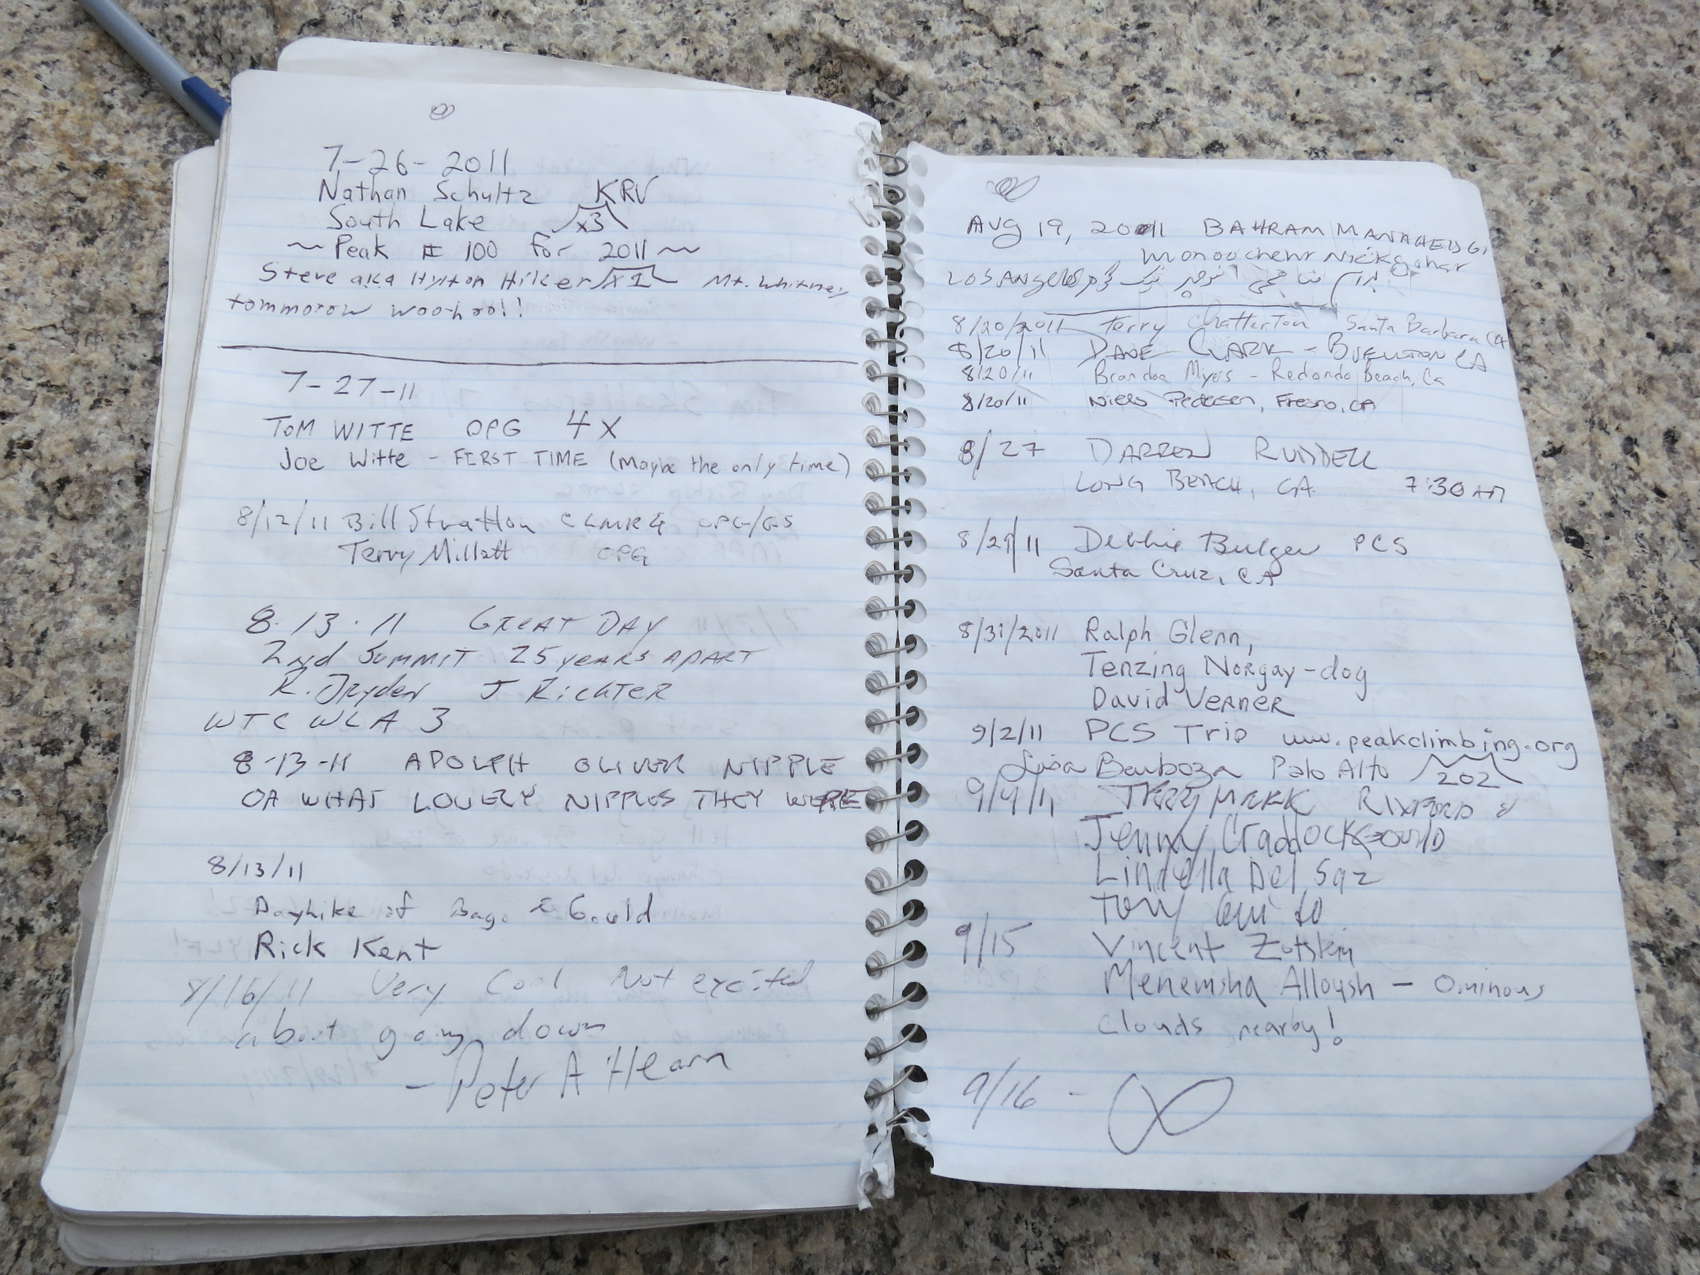 7-26-2011
Nathan Schultz KRV
South Lake x3
~ Peak # 100 for 2011 ~
Steve aka Hylton Hilker x1 Mt. Whitney
tommorow woohoo!!
7-27-11
TOM WITTE OPG 4X
Joe Witte - FIRST TIME (Maybe the only time)
8/12/11 Bill Stratton CLMRG OPG/GS
Terry Millett OPG
8.13.11 GREAT DAY
2nd SUMMIT 25 years APART
R. Dryden J. RICHTER
WTC WLA 3
8-13-11 ADOLPH OLIVER NIPPLE
OH WHAT LOVELY NIPPLES THEY WERE
8/13/11
Dayhike of Bago & Gould
Rick Kent
8/16/11 Very Cool Not excited
about going down
- Peter A Hearn
Aug 19, 2011 BAHRAM
LOS ANGELES
8/20/2011 Terry Chatterton Santa Barbara CA
8/20/11 DAVE CLARK - BUELLTON CA
8/20/11 Brandon Myers - Redondo Beach, Ca
8/20/11 Niels Pedersen, Fresno, CA
8/27 DARREN RUDDELL
LONG BEACH, CA 7:30 AM
8/29/11 Debbie Bulger PCS
Santa Cruz, CA
8/31/2011 Ralph Glenn,
Tenzing Norgay-dog
David Verner
9/2/11 PCS Trip www.peakclimbing.org
Lisa Barboza Palo Alto 202
9/4/11 RIXFORD &
Jenny Craddock
Lindella Del Saz
Tony
9/15 Vincent
Menemsha Alloush - Ominous
clouds nearby!
9/16 -